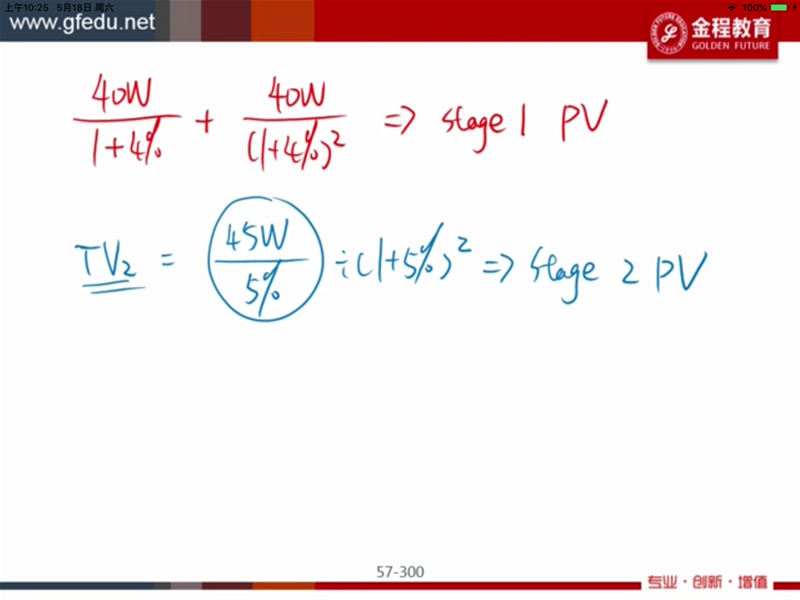 上午10:25 5月18日 周六
100%
www.gfedu.net
金程教育
GOLDEN FUTURE
40W/(1+4%) + 40W/(1+4%)² => stage 1 PV
TV₂ = 45W/5% ÷(1+5%)² => stage 2 PV
57-300
专业·创新·增值